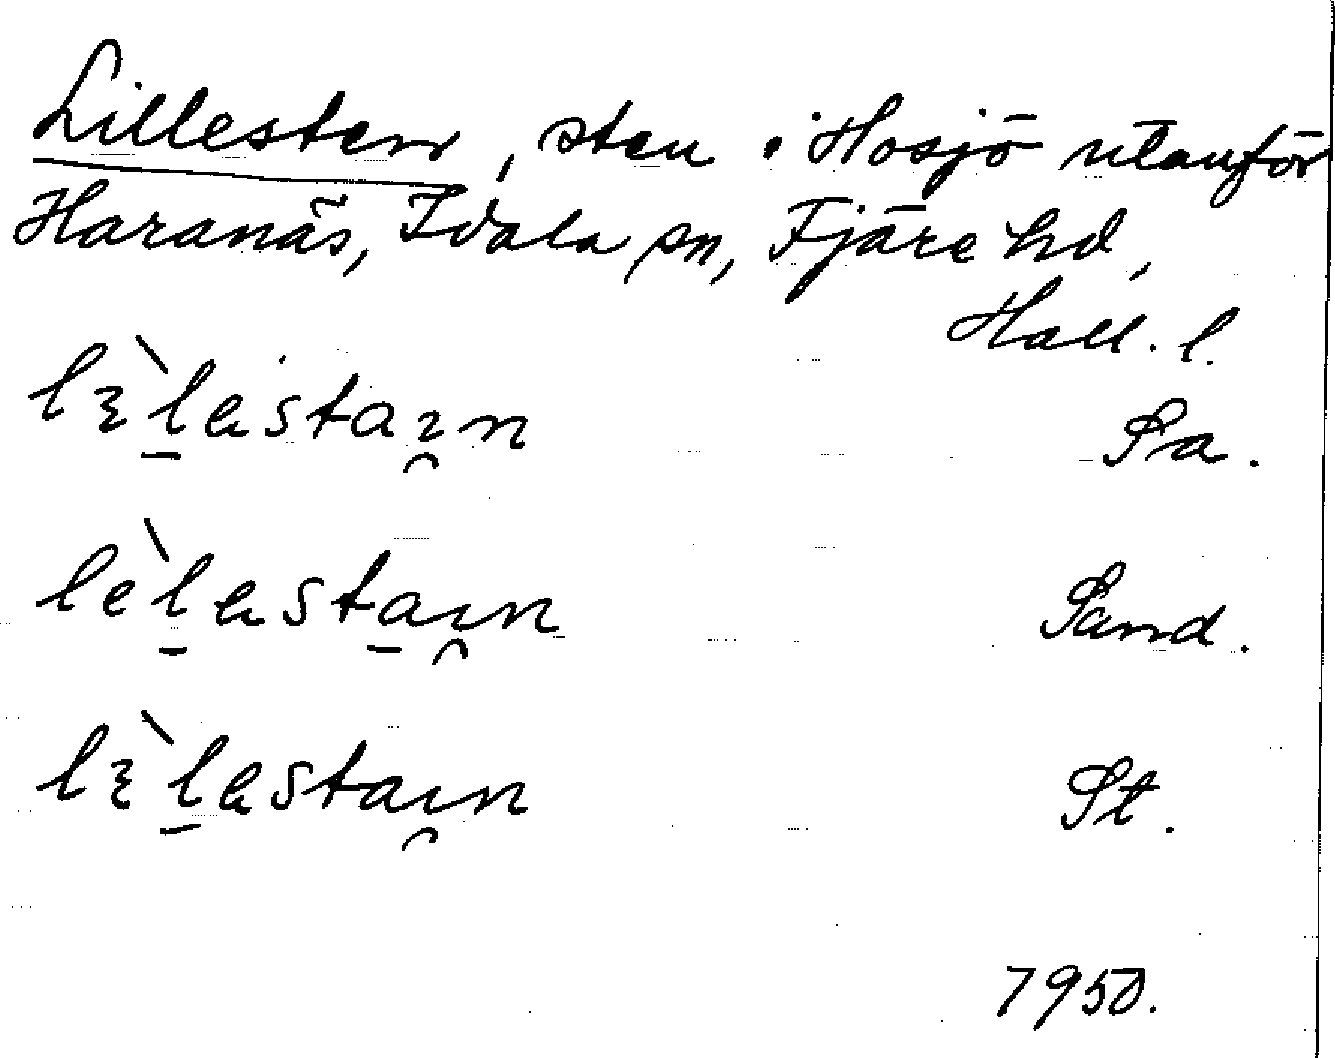 Lillesten, sten i Hosjö utanför
Haranäs, Idala sn, Fjäre hd,
Hall. l.
lɛ̀l̠estaɪ̯n Sa.
lèl̠esta̠ɪ̯n Sand.
lɛ̀l̠estaɪ̯n St.
1950.